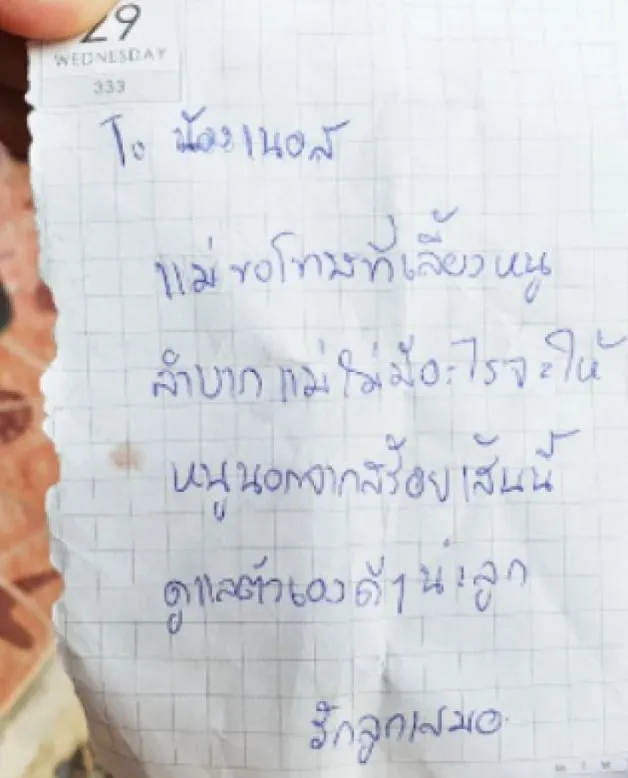 29
WEDNESDAY
333
To น้องเนอส
แม่ขอโทษที่เลี้ยงหนู
ลำบาก แม่ไม่มีอะไรจะให้
หนูนอกจากสร้อยเส้นนี้
ดูแลตัวเองดีๆ น่ะลูก
รักลูกเสมอ